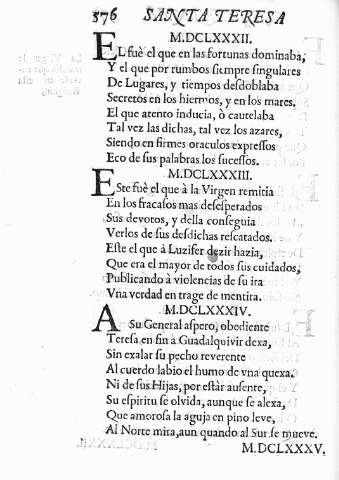 576 SANTA TERESA
M.DCLXXXII.
EL fuè el que en las fortunas dominaba,
Y el que por rumbos siempre singulares
De Lugares, y tiempos desdoblaba
Secretos en los hiermos, y en los mares.
El que atento inducia, ò cautelaba
Tal vez las dichas, tal vez los azares,
Siendo en firmes oraculos expressos
Eco de sus palabras los sucessos.
M.DCLXXXIII.
Este fuè el que à la Virgen remitia
En los fracasos mas desesperados
Sus devotos, y della conseguia
Verlos de sus desdichas rescatados.
Este el que à Luzifer dezir hazia,
Que era el mayor de todos sus cuidados,
Publicando à violencias de su ira
Vna verdad en trage de mentira.
M.DCLXXXIV.
A Su General aspero, obediente
Teresa en fin à Guadalquivir dexa,
Sin exalar su pecho reverente
Al cuerdo labio el humo de vna quexa.
Ni de sus Hijas, por estàr ausente,
Su espiritu se olvida, aunque se alexa,
Que amorosa la aguja en pino leve,
Al Norte mira, aun quando al Sur se mueve.
M.DCLXXXV.